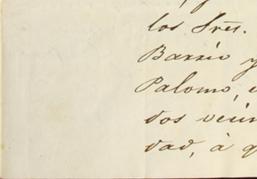 los Sres.
Barrio y
Palomo, 
dos vein
dad, à q